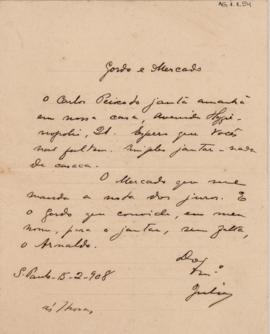 Gordo e Mercado
O Carlos Peixoto janta amanhã
em nossa casa, Avenida Hygie-
nopolis, 21. Espero que Vocês
não faltem. Simples jantar - nada
de casaca.
O Mercado que me
manda a nota dos juros. E
o Gordo que convide, em meu
nome, para o jantar, sem falta,
o Arnaldo.
Do
S. Paulo - 15-2-908
Julio
ás 7 horas